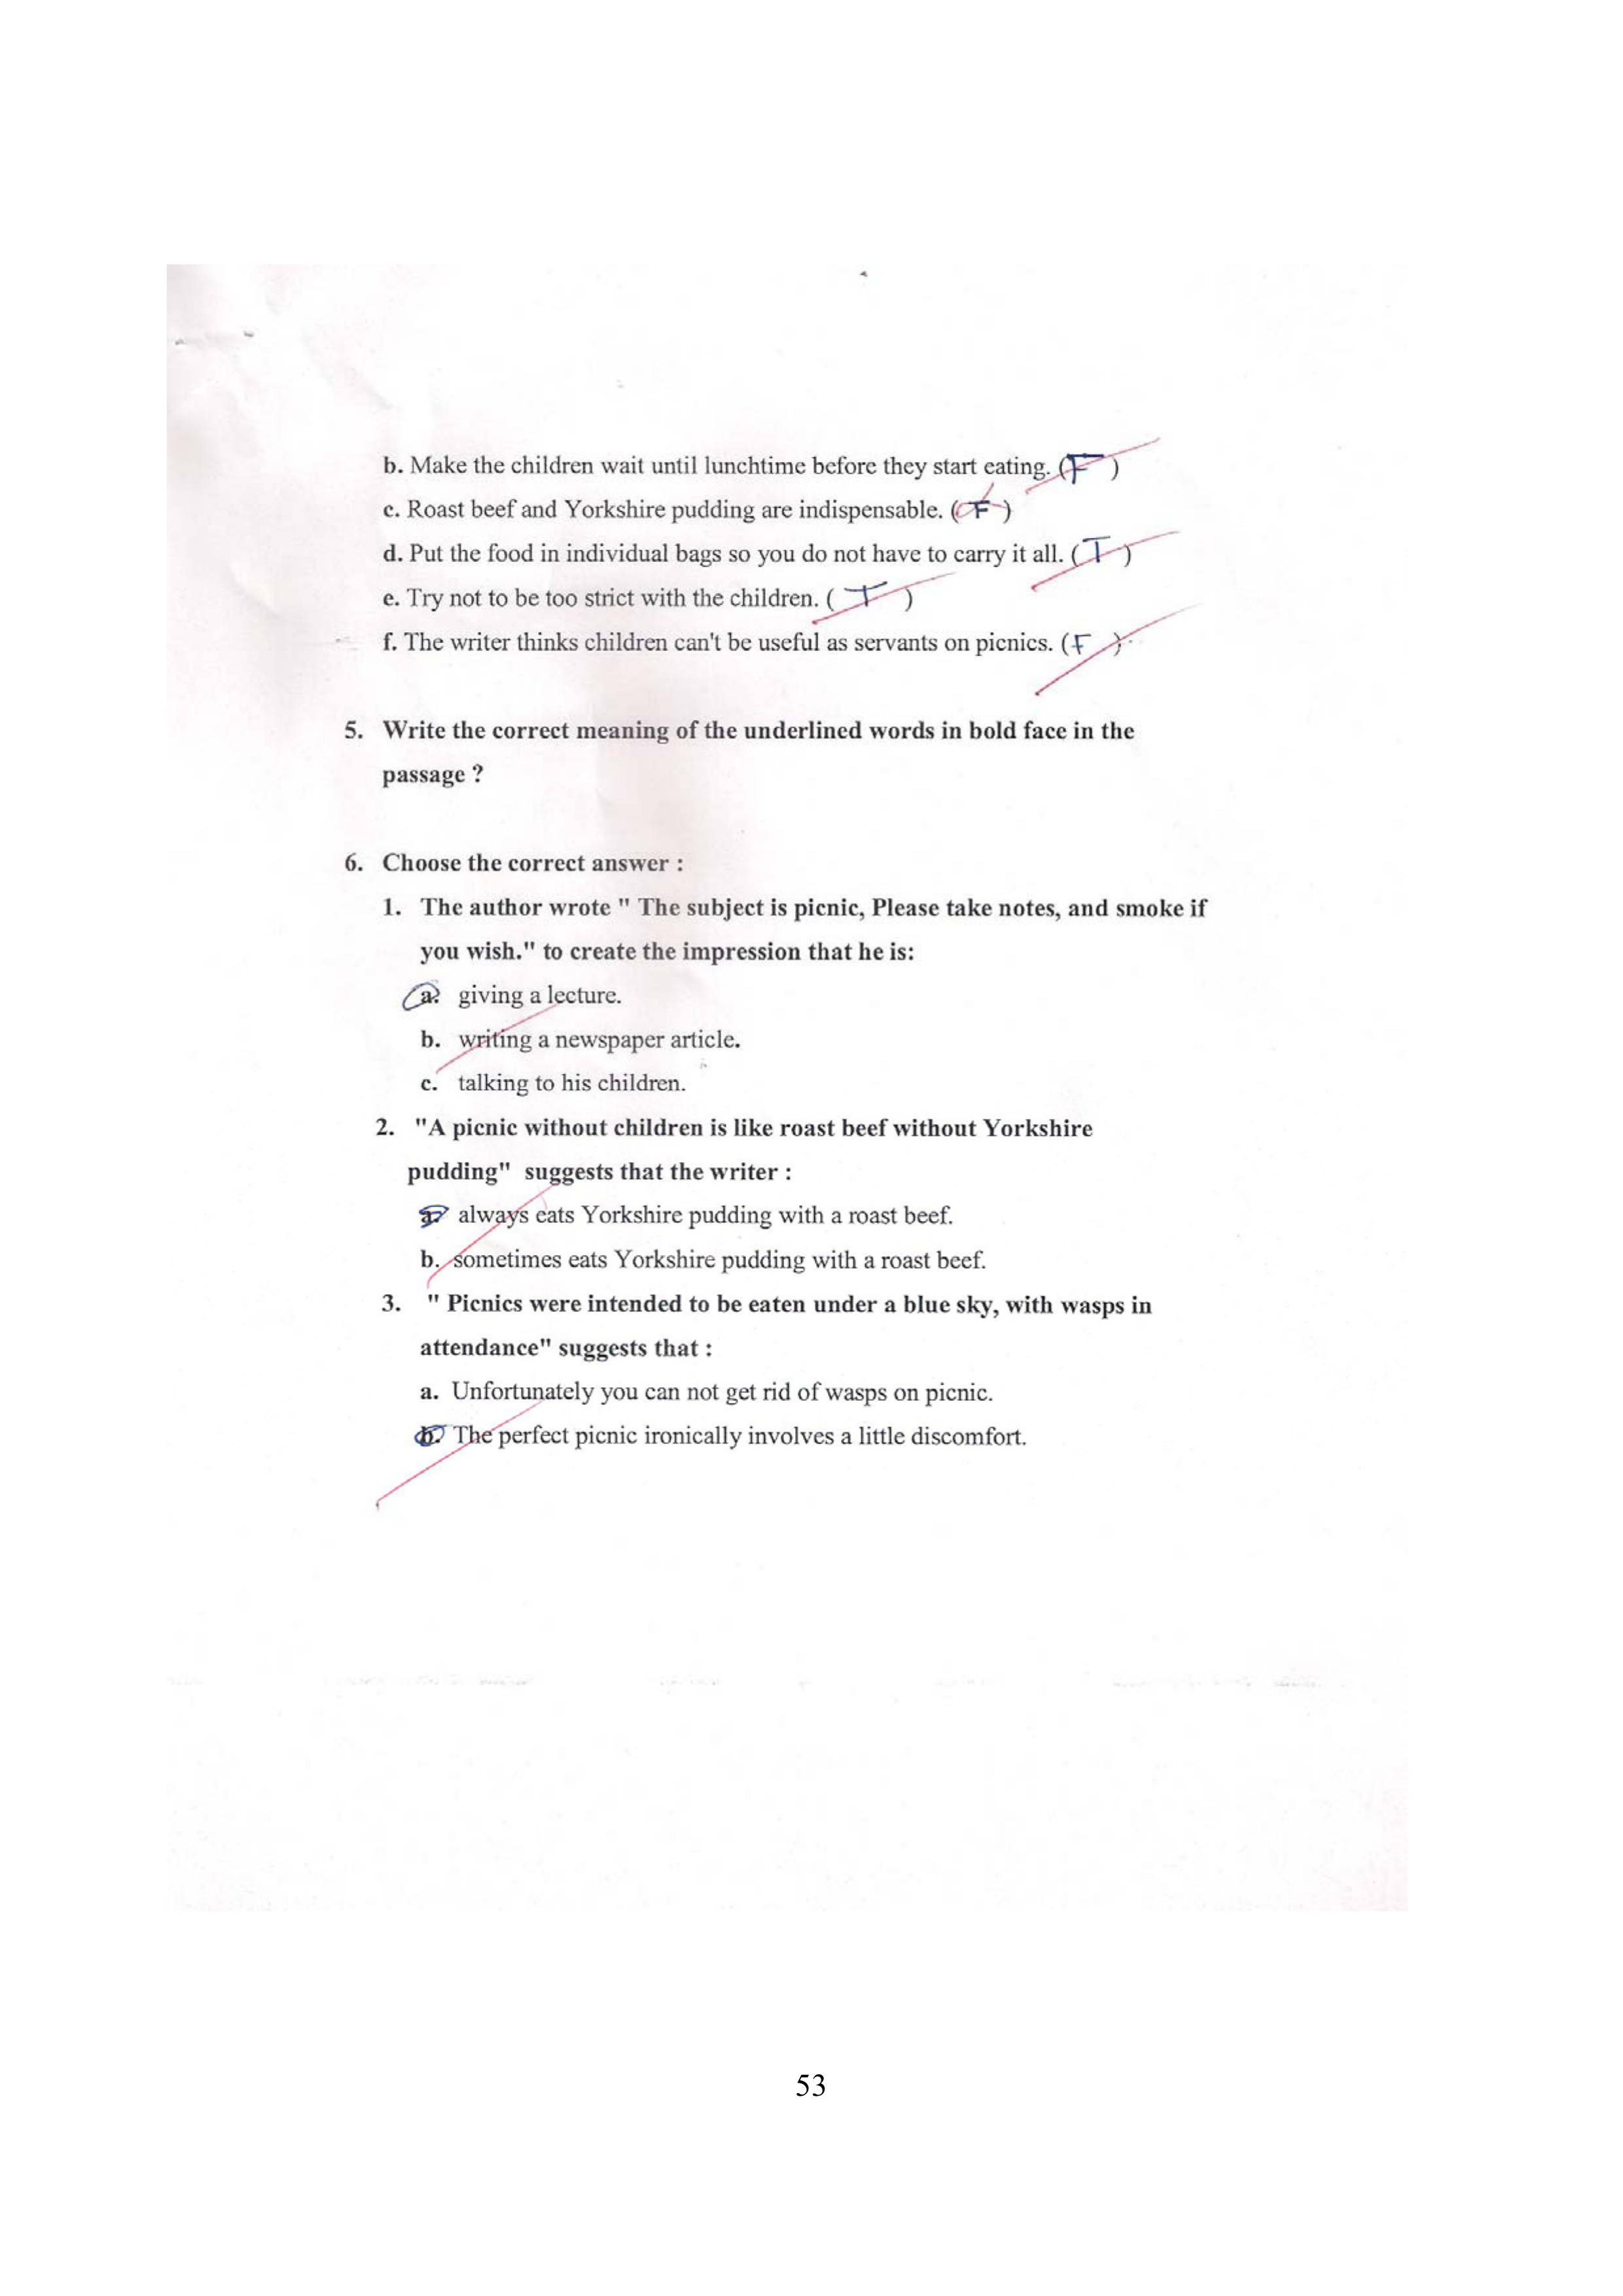 b. Make the children wait until lunchtime before they start eating. (F)
c. Roast beef and Yorkshire pudding are indispensable. (F)
d. Put the food in individual bags so you do not have to carry it all. (T)
e. Try not to be too strict with the children. ( T )
f. The writer thinks children can't be useful as servants on picnics. (F )
5. Write the correct meaning of the underlined words in bold face in the
passage ?
6. Choose the correct answer :
1. The author wrote " The subject is picnic, Please take notes, and smoke if
you wish." to create the impression that he is:
a. giving a lecture.
b. writing a newspaper article.
c. talking to his children.
2. "A picnic without children is like roast beef without Yorkshire
pudding" suggests that the writer :
a. always eats Yorkshire pudding with a roast beef.
b. sometimes eats Yorkshire pudding with a roast beef.
3. " Picnics were intended to be eaten under a blue sky, with wasps in
attendance" suggests that :
a. Unfortunately you can not get rid of wasps on picnic.
b. The perfect picnic ironically involves a little discomfort.
53